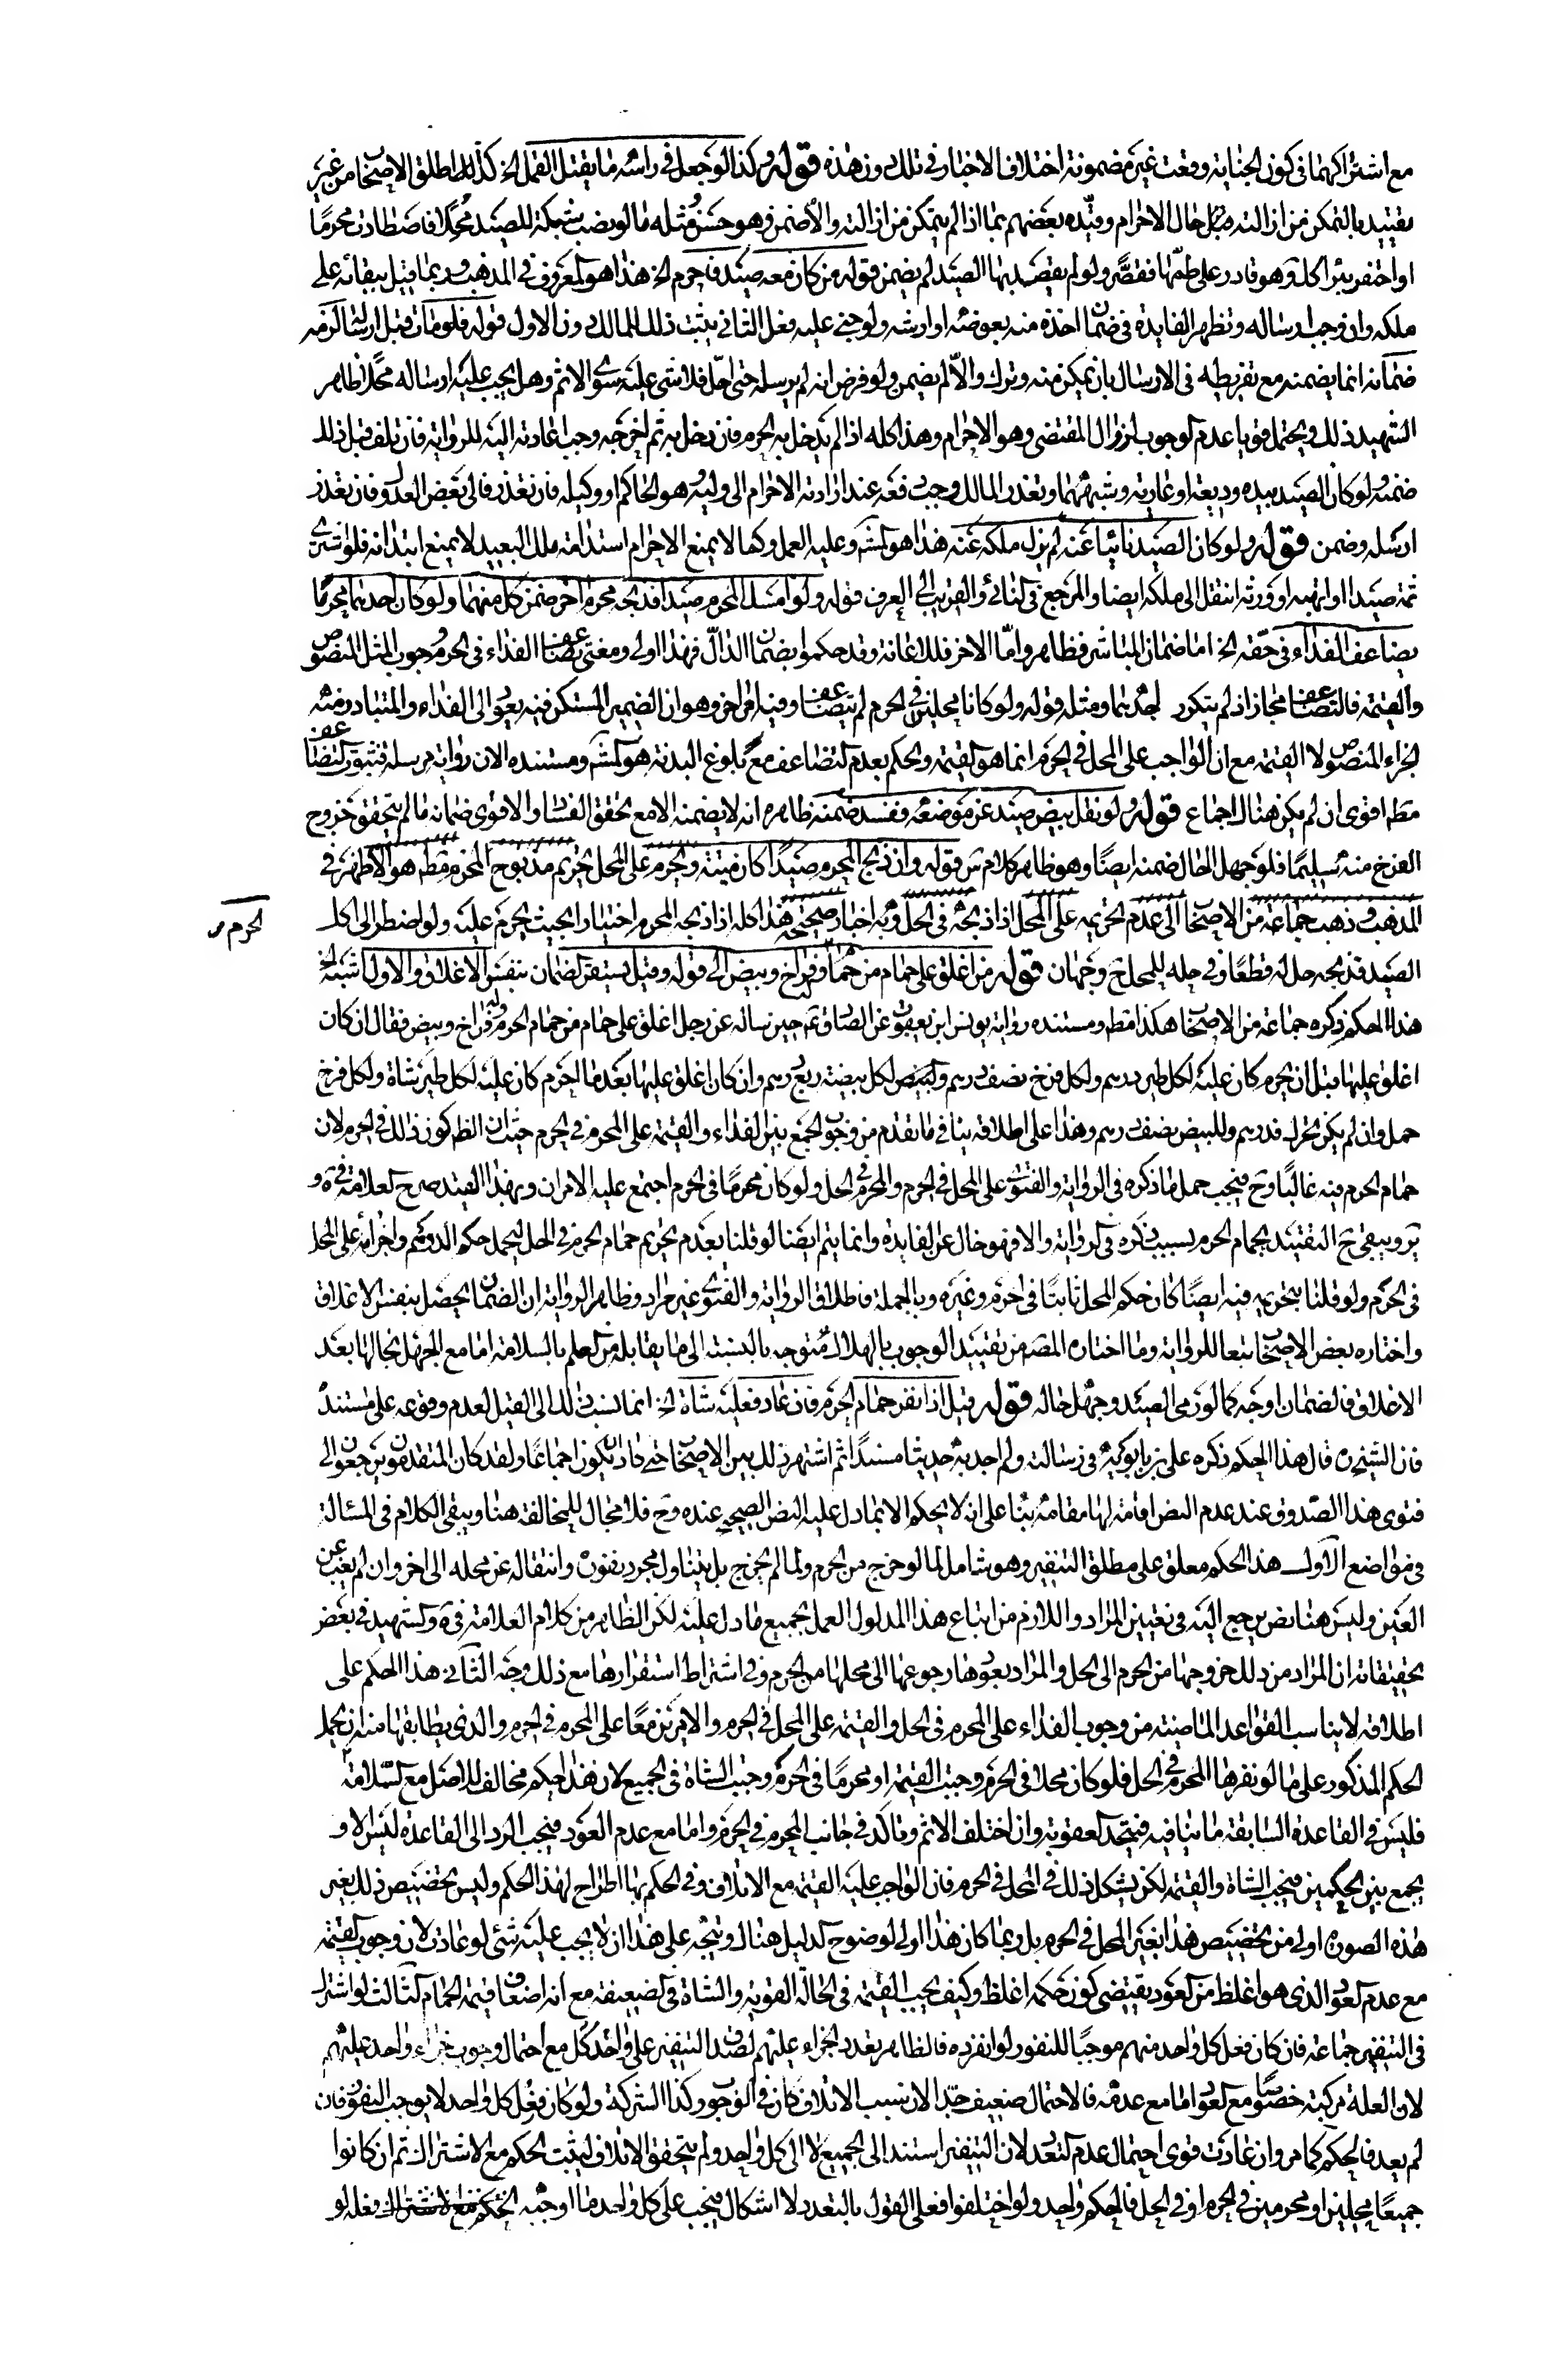 مع اشتراكهما في كون الجناية وقعت غير مضمونة اختلاف الاخبار في تلك دون هذه قوله وكذا لو جعل في راسه ما يقتل القمل الخ كذا اطلق الاصحاب من غير
تقييد بالتمكن من ازالته قبل حال الاحرام وقيده بعضهم بما اذا لم يتمكن من ازالته والا ضمن وهو حسن ومثله ما لو نصب شبكة للصيد محلا فاصطادت محرما
او احتفر بئرا كل وهو قادر على طمها فقصر ولو لم يقصد بها الصيد لم يضمن قوله من كان معه صيد فاحرم الخ هذا هو المعروف في المذهب وربما قيل ببقائه على
ملكه وان وجب ارساله وتظهر الفايدة في ضمان اخذه منه بعوضه او ارشه ولو جنى عليه فعلى الثاني يثبت ذلك للمالك دون الاول قوله فلو مات قبل ارساله لزمه
ضمانه انما يضمنه مع تفريطه في الارسال بان تمكن منه وترك والا لم يضمن ولو فرض انه لم يرسله حتى احل فلا شئ عليه سوى الاثم وهل يجب عليه ارساله محلا ظاهر
الشهيد ذلك ويحتمل قويا عدم الوجوب لزوال المقتضى وهو الاحرام وهذا كله اذا لم يدخل به الحرم فان دخل به ثم اخرجه وجب اعادته اليه للرواية فان تلف قبل ذلك
ضمنه ولو كان الصيد بيده وديعة او عارية وشبههما وتعذر المالك وجب دفعه عند ارادته الاحرام الى وليه وهو الحاكم او وكيله فان تعذر فالى بعض العدول فان تعذر
ارسله وضمن قوله ولو كان الصيد نائيا عنه لم يزل ملكه عنه هذا هو المشه وعليه العمل وكما لا يمنع الاحرام استدامة ملك البعيد لا يمنع ابتدائه فلو اشترى
ثمة صيدا او اتهبه او ورثه انتقل الى ملكه ايضا والمرجع في النائي والقريب الى العرف قوله ولو امسك المحرم صيدا فذبحه محرم اخر ضمن كل منهما ولو كان احدهما محرما
يضاعف الفداء في حقه الخ اما ضمان المباشر فظاهر واما الاخر فللاعانة وقد حكموا بضمان الدال فهذا اولى ومعنى تضاعف الفداء في الحرم وجوب المثل المنصوص
والقيمة فالتضاعف مجاز اذ لم يتكرر احدهما ومثله قوله ولو كانا محلين في الحرم لم يتضاعف وفيه امر اخر وهو ان الضمير المستكن فيه يعود الى الفداء والمتبادر منه
الجزاء المنصوص لا القيمة مع ان الواجب على المحل في الحرم انما هو القيمة والحكم بعدم التضاعف مع بلوغ البدنة هو المشه ومستنده الان رواية مرسلة فثبوت التضاعف
مطم اقوى ان لم يكن هناك اجماع قوله ولو نقل بيض صيد عن موضعه ففسد ضمنه ظاهره انه لا يضمنه الا مع تحقق الفساد والاقوى ضمانه ما لم يتحقق خروج
الفرخ منه سليما فلو جهل الحال ضمنه ايضا وهو ظاهر كلام س قوله وان ذبح المحرم صيدا كان ميتة ويحرم على المحل تحريم مذبوح المحرم مطم هو الاظهر في
المذهب وذهب جماعة من الاصحاب الى عدم تحريمه على المحل اذا ذبحه في الحل وبه اخبار صحيحة هذا كله اذا ذبحه المحرم اختيارا بحيث يحرم عليه ولو اضطر الى اكل
الحرم
الصيد فذبحه حل له قطعا وفي حله للمحل ح وجهان قوله من اغلق على حمام من حمام وفراخ وبيض الى قوله وقيل يستقر الضمان بنفس الاغلاق والاول اشبه الخ
هذا الحكم ذكره جماعة من الاصحاب هكذا مطم ومستنده رواية يونس ابن يعقوب عن الصادق عم حين ساله عن رجل اغلق على حمام من حمام الحرم وفراخ وبيض فقال ان كان
اغلق عليها قبل ان يحرم كان عليه لكل طير درهم ولكل فرخ نصف درهم ولكل بيضة ربع درهم وان كان اغلق عليها بعد ما احرم كان عليه لكل طير شاة ولكل فرخ
حمل وان لم يكن تحرك فدرهم وللبيض نصف درهم وهذا على اطلاقه ينافي ما تقدم من وجوب الجمع بين الفداء والقيمة على المحرم في الحرم حيث ان الظ كون ذلك في الحرم لان
حمام الحرم فيه غالبا وح فيجب حمل ما ذكره في الرواية والفتوى على المحل في الحرم والمحرم في الحل ولو كان محرما في الحرم اجتمع عليه الامران وبهذا القيد صرح العلامة في ة و
ير ويبقى ح التقييد بحمام الحرم بسبب ذكره في الرواية والا فهو خال عن الفايدة وانما يتم ايضا لو قلنا بعدم تحريم حمام الحرم في الحل ليجمل حكم الدرهم واجزائه على المحل
في الحرم ولو قلنا بتحريمه فيه ايضا كان حكم المحل ثابتا في الحرم وغيره وبالجملة فاطلاق الرواية والفتوى غير مراد وظاهر الرواية ان الضمان يحصل بنفس الاغلاق
واختاره بعض الاصحاب تبعا للرواية وما اختاره المصم من تقييد الوجوب بالهلاك متوجه بالنسبة الى ما يقابله من العلم بالسلامة اما مع الجهل بحالها بعد
الاغلاق فالضمان اوجه كما لو رمى الصيد وجهل حاله قوله قيل اذا نفر حمام الحرم فان عاد فعليه شاة الخ انما نسب ذلك الى القيل لعدم وقوعه على مستند
فان الشيخ ره قال هذا الحكم ذكره علي بن بابويه في رسالته ولم اجد به حديثا مسندا ثم اشتهر ذلك بين الاصحاب حتى كاد ان يكون اجماعا ولقد كان المتقدمون يرجعون الى
فتوى هذا الصدوق عند عدم النص اقامة لها مقامه بناء على انه لا يحكم الا بما دل عليه النص الصحيح عنده وح فلا مجال للمخالفة هنا ويبقى الكلام في المسألة
في مواضع الاول هذا الحكم معلق على مطلق التنفير وهو شامل لما لو خرج من الحرم ولما لم يخرج بل يتناول مجرد نفوره وانتقاله عن محله الى اخر وان لم يغب عن
العين وليس هنا نص يرجع اليه في تعيين المراد واللازم من اتباع هذا المدلول العمل بجميع ما دل عليه لكن الظاهر من كلام العلامة في ة والشهيد في بعض
تحقيقاته ان المراد من ذلك خروجها من الحرم الى الحل والمراد بعودها رجوعها الى محلها من الحرم وفي اشتراط استقرارها مع ذلك وجه الثاني هذا الحكم على
اطلاقه لا يناسب القواعد الماضية من وجوب الفداء على المحرم في الحل والقيمة على المحل في الحرم والامرين معا على المحرم في الحرم والذي يطابقها منه ان يحمل
الحكم المذكور على ما لو نفرها المحرم في الحل فلو كان محلا في الحرم وجبت القيمة او محرما في الحرم وجبت الشاة في الجميع لان هذا الحكم مخالف للاصل مع السلامة
فليس في القاعدة السابقة ما ينافيه فيتحد العقوبة وان اختلف الاثم وتاكد في جانب المحرم في الحرم واما مع عدم العود فيجب الرد الى القاعدة ليس الا و
يجمع بين الحكمين فيجب الشاة والقيمة لكن يشكل ذلك في المحل في الحرم فان الواجب عليه القيمة مع الاتلاف وفي الحكم بها اطراح لهذا الحكم وليس تخصيص ذلك بغير
هذه الصورة اولى من تخصيص هذا بغير المحل في الحرم بل وربما كان هذا اولى لوضوح الدليل هناك ويتجه على هذا ان لا يجب عليه شئ لو عادت لان وجوب القيمة
مع عدم العود الذي هو اغلظ من العود يقتضي كون حكمه اغلظ وكيف يجب القيمة في الحالة القوية والشاة في الضعيفة مع انه اضعاف قيمة الحمام الثالث لو اشترك
في التنفير جماعة فان كان فعل كل واحد منهم موجبا للنفور لو انفرد فالظاهر تعدد الجزاء عليهم لصدق التنفير على واحد كل مع احتمال وجوب جزاء واحد عليهم
لان العلة مركبة خصوصا مع العود اما مع عدمه فالاحتمال ضعيف جدا لان سبب الاتلاف كان في الوجود وكذا الشركة ولو كان فعل كل واحد لا يوجب النفور فان
لم يعد فالحكم كما مر وان عادت قوى احتمال عدم التعدد لان التنفير استند الى الجميع لا الى كل واحد ولم يتحقق الاتلاف ليثبت الحكم مع الاشتراك ثم ان كانوا
جميعا محلين او محرمين في الحرم او في الحل فالحكم واحد ولو اختلفوا فعلى القول بالتعدد لا اشكال فيجب على كل واحد ما اوجبه الحكم فعله لو